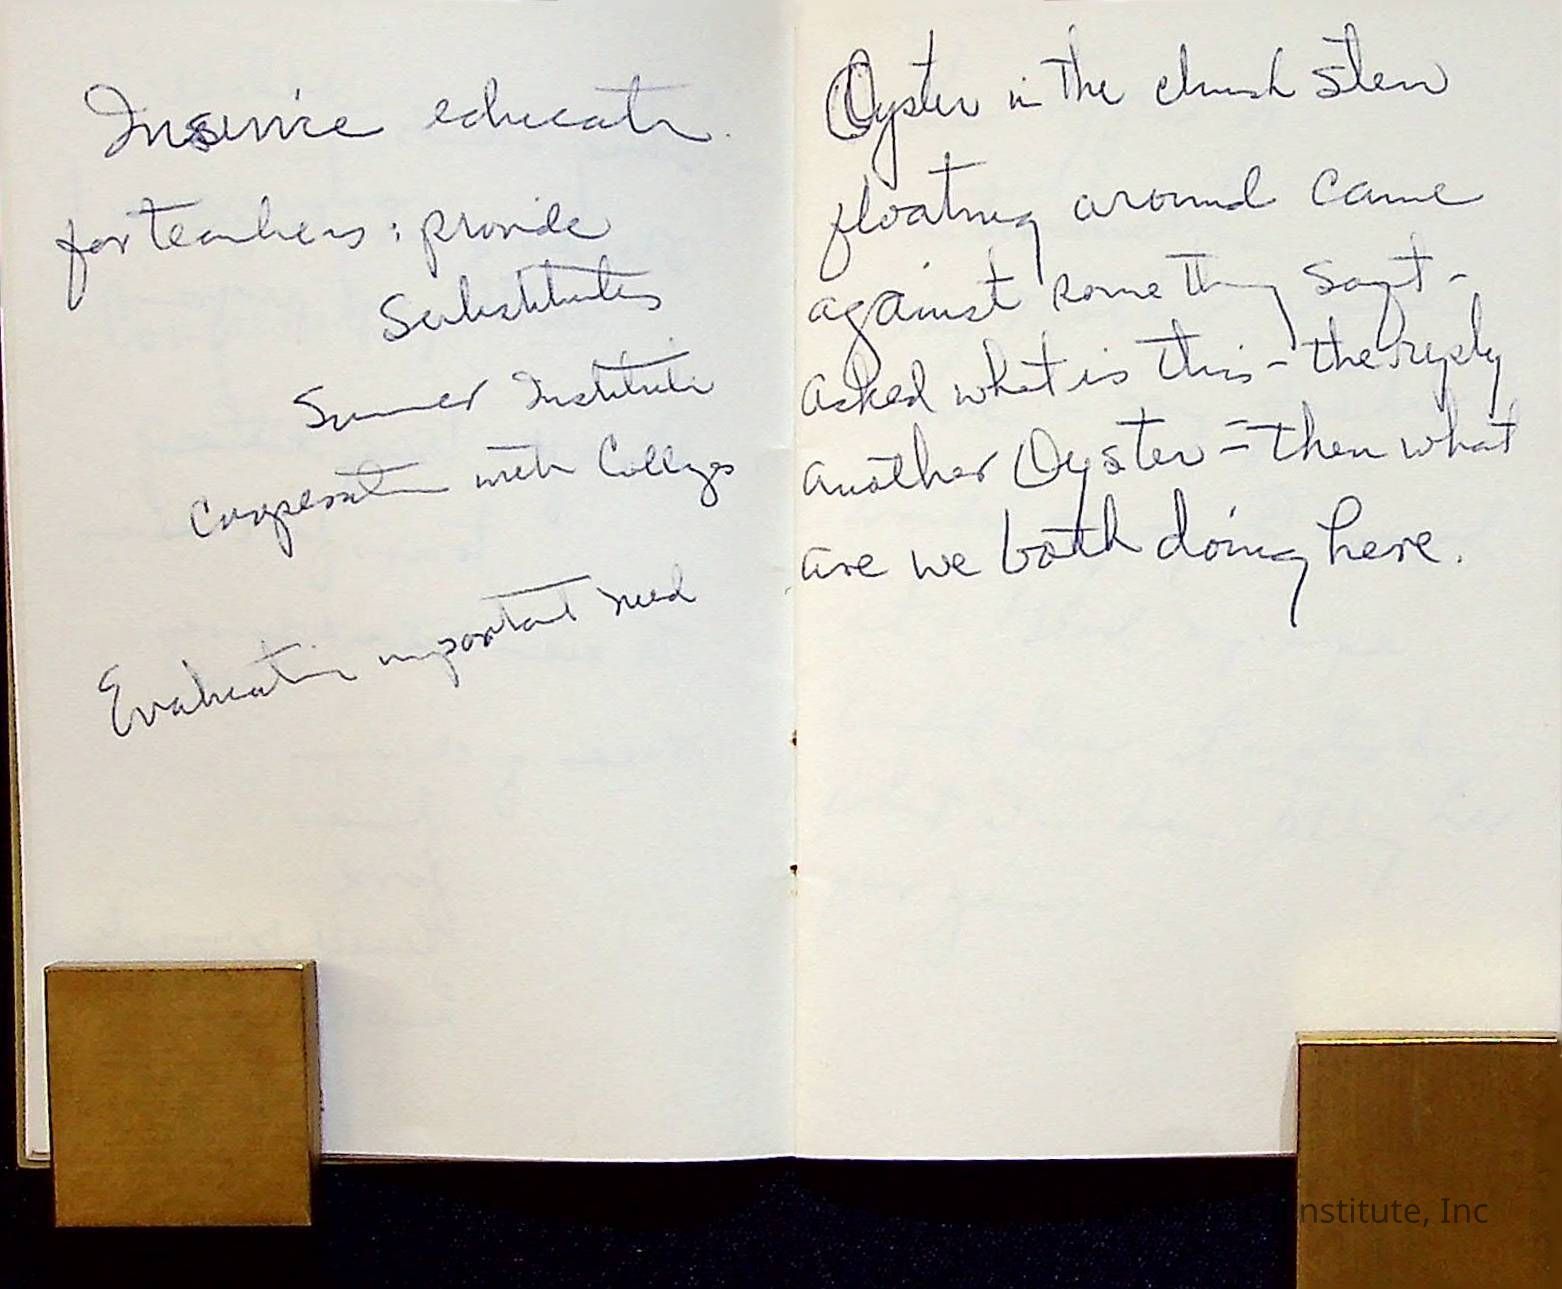 Inservice educatn.
for teachers: provide
Substitutes
Summer Institute
Cooperation with Colleges
Evaluation important need
Oyster in the church stew
floating around came
against something soft -
asked what is this - the reply
another Oyster = then what
are we both doing here.
nstitute, Inc